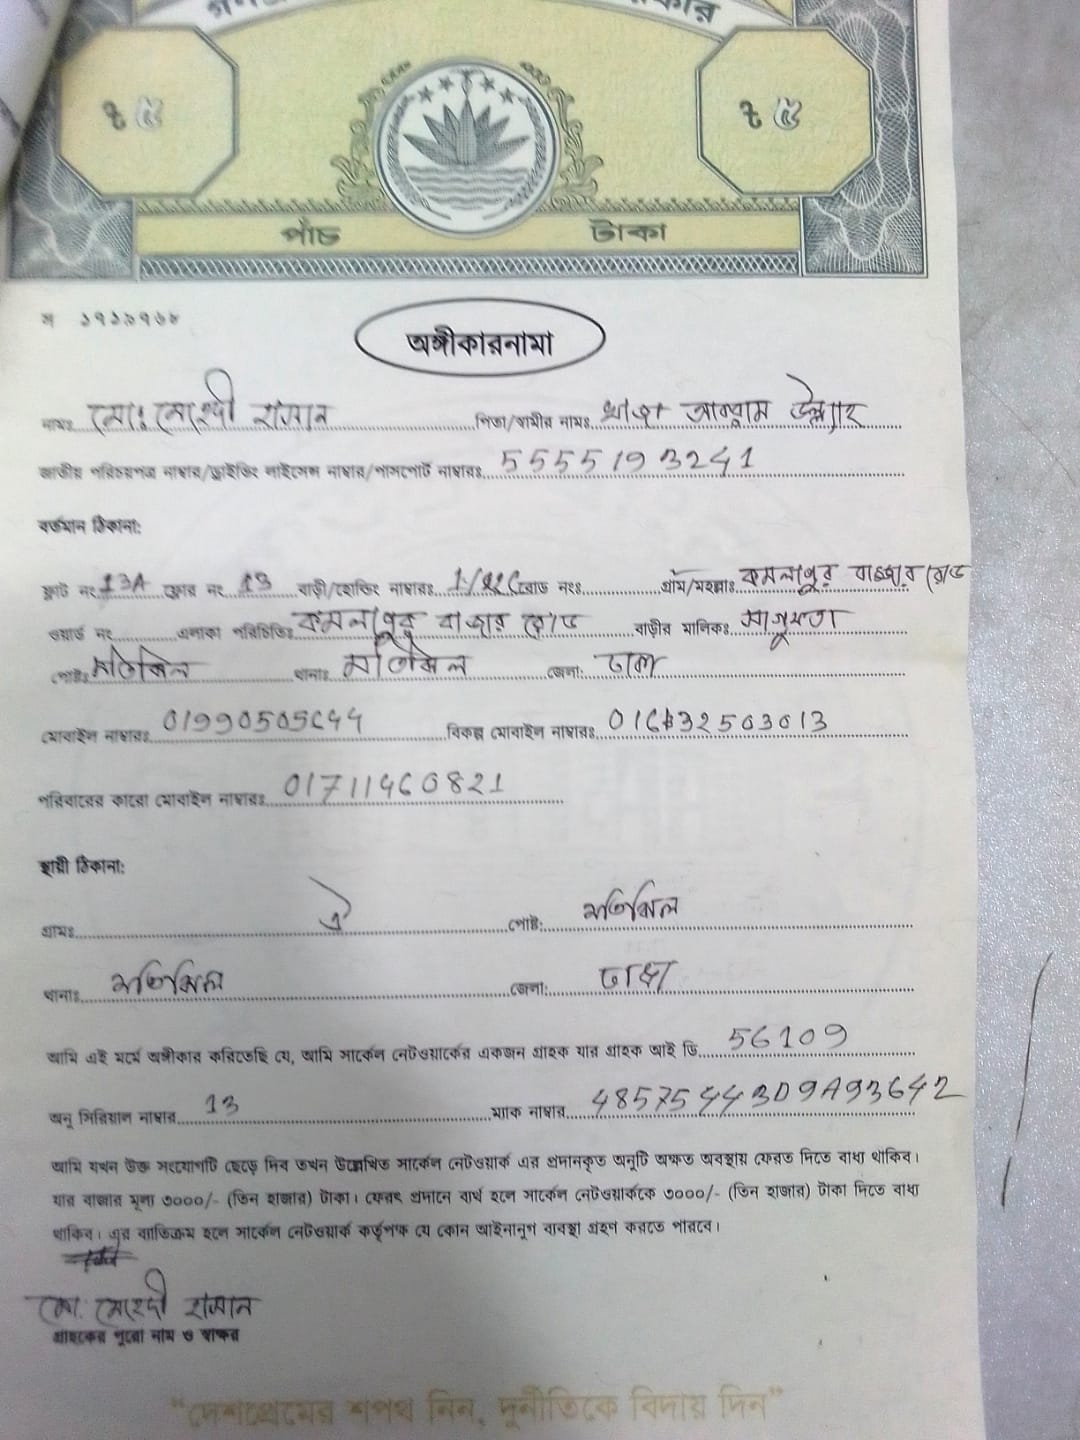 ৳ ৫ ৳ ৫
পাঁচ টাকা
অঙ্গীকারনামা
নামঃ মোঃ মেহেদী হাসান পিতা/স্বামীর নামঃ খাজা আহছান উল্ল্যাহ
জাতীয় পরিচয়পত্র নাম্বার/ড্রাইভিং লাইসেন্স নাম্বার/পাসপোর্ট নাম্বারঃ 5555193241
বর্তমান ঠিকানা:
ফ্লাট নং 13A ফ্লোর নং 13 বাড়ী/হোল্ডিং নাম্বারঃ রোড নংঃ গ্রাম/মহল্লাঃ কমলাপুর বাজার রোড
ওয়ার্ড নং এলাকা পরিচিতিঃ কমলাপুর বাজার রোড বাড়ীর মালিকঃ
পোষ্টঃ মতিঝিল থানাঃ মতিঝিল জেলা: ঢাকা
মোবাইল নাম্বারঃ বিকল্প মোবাইল নাম্বারঃ
পরিবারের কারো মোবাইল নাম্বারঃ 01711460821
স্থায়ী ঠিকানা:
গ্রামঃ ঐ পোষ্ট: মতিঝিল
থানাঃ মতিঝিল জেলা: ঢাকা
আমি এই মর্মে অঙ্গীকার করিতেছি যে, আমি সার্কেল নেটওয়ার্কের একজন গ্রাহক যার গ্রাহক আই ডি 56109
অনু সিরিয়াল নাম্বার 13 ম্যাক নাম্বার 4857544309A93642
আমি যখন উক্ত সংযোগটি ছেড়ে দিব তখন উল্লেখিত সার্কেল নেটওয়ার্ক এর প্রদানকৃত অনুটি অক্ষত অবস্থায় ফেরত দিতে বাধ্য থাকিব।
যার বাজার মূল্য ৩০০০/- (তিন হাজার) টাকা। ফেরৎ প্রদানে ব্যর্থ হলে সার্কেল নেটওয়ার্ককে ৩০০০/- (তিন হাজার) টাকা দিতে বাধ্য
থাকিব। এর ব্যতিক্রম হলে সার্কেল নেটওয়ার্ক কর্তৃপক্ষ যে কোন আইনানুগ ব্যবস্থা গ্রহণ করতে পারবে।
মো. মেহেদী হাসান
গ্রাহকের পুরো নাম ও স্বাক্ষর
"দেশপ্রেমের শপথ নিন, দুর্নীতিকে বিদায় দিন"